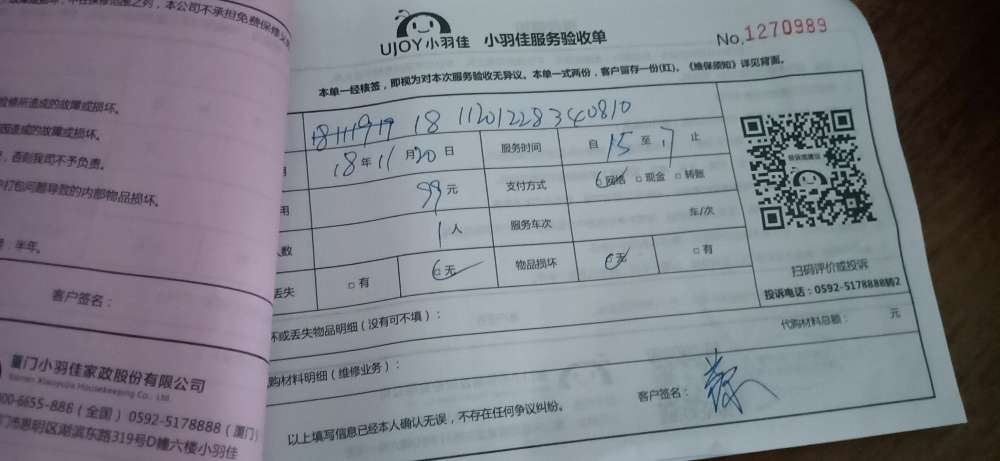 ，本公司不承担免费保修义
修所造成的故障或损坏。
造成的故障或损坏。
，否则我司不予负责。
打包问题导致的内部物品损坏。
，半年。
客户签名：
厦门小羽佳家政股份有限公司
Xiamen Xiaoyujia Housekeeping Co., Ltd.
000-6655-888（全国） 0592-5178888（厦门）
门市思明区湖滨东路319号D幢六楼小羽佳
UJOY小羽佳 小羽佳服务验收单
No.1270989
本单一经核签，即视为对本次服务验收无异议。本单一式两份，客户留存一份(红)。《维保须知》详见背面。
18 11201228340810
18年11月20日 服务时间 自15至17止
用 99元 支付方式 网络 □现金 □转账
人数 1人 服务车次 车/次
丢失 □有 无 物品损坏 无 □有
扫码评价或投诉
投诉电话：0592-5178888转2
坏或丢失物品明细（没有可不填）：
代购材料总额： 元
购材料明细（维修业务）：
以上填写信息已经本人确认无误，不存在任何争议纠纷。
客户签名：